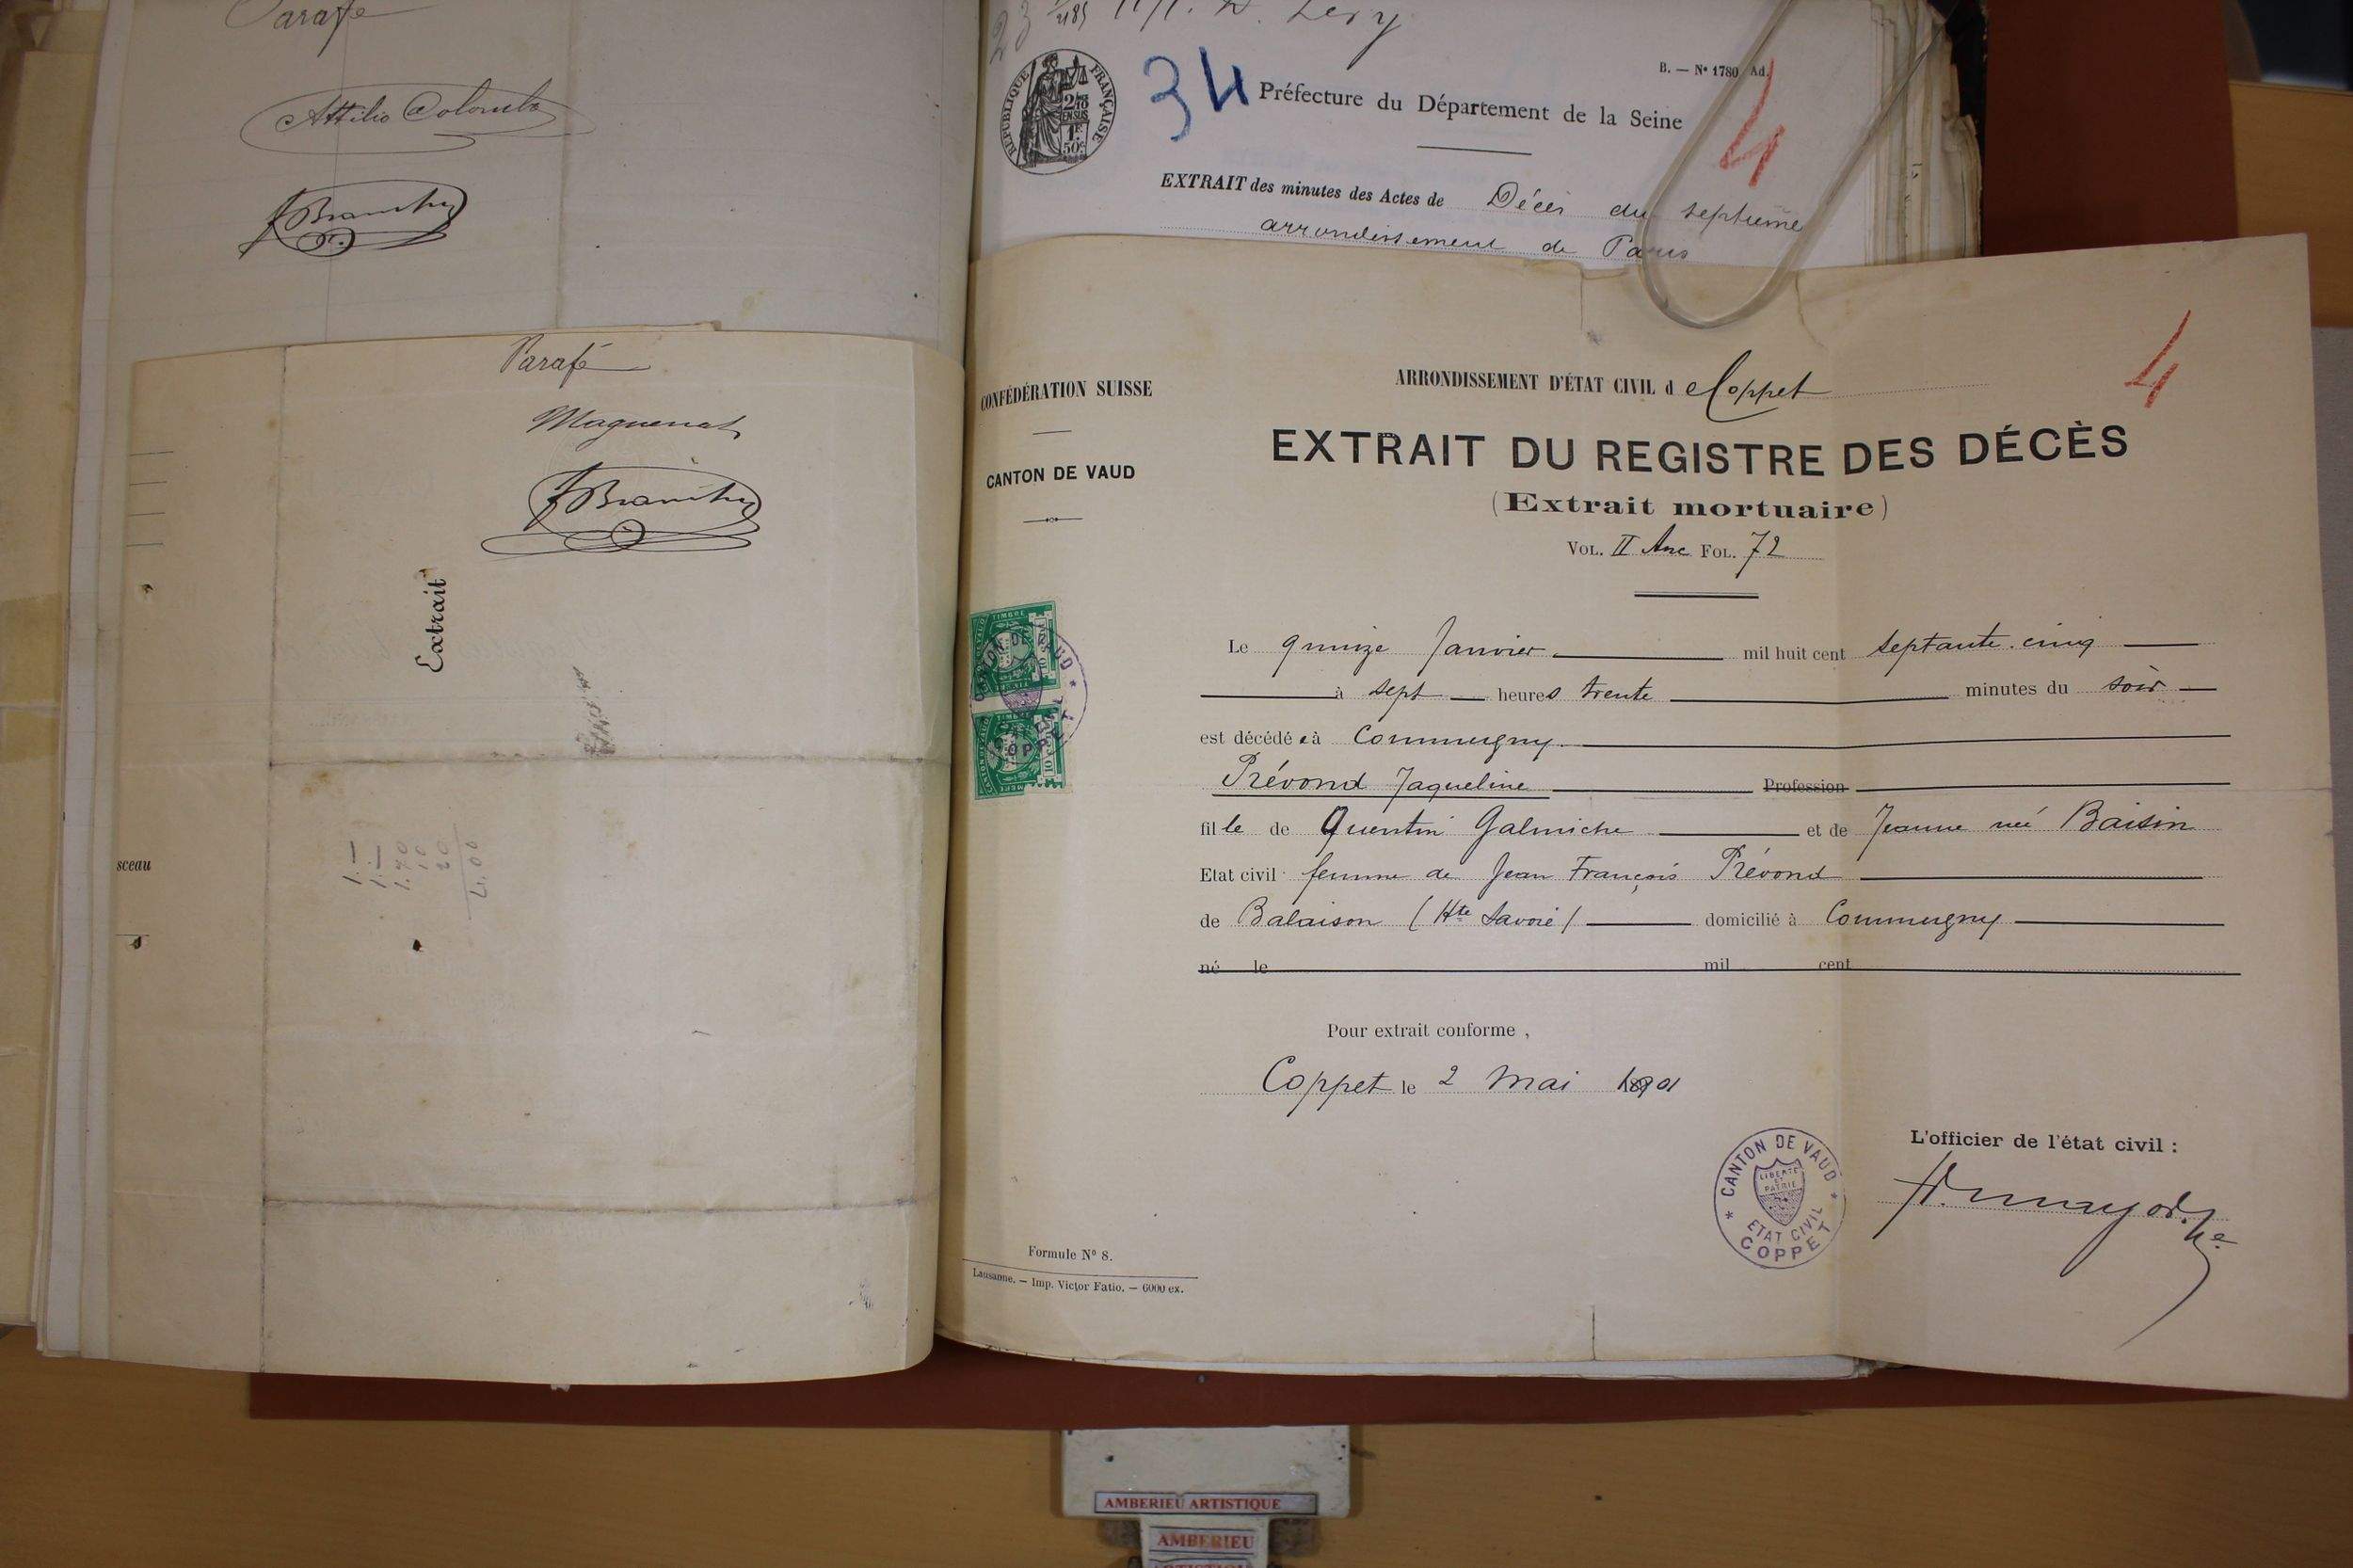 Parafé
Attilio Colombo
Parafé
Extrait
1.—
1.—
1.70
10
20
4.00
sceau
RÉPUBLIQUE FRANÇAISE
34
B. — Nº 1780 Ad.
4
Préfecture du Département de la Seine
EXTRAIT des minutes des Actes de Décès du septième
arrondissement de Paris
CONFÉDÉRATION SUISSE
CANTON DE VAUD
4
ARRONDISSEMENT D'ÉTAT CIVIL de Coppet
EXTRAIT DU REGISTRE DES DÉCÈS
(Extrait mortuaire)
VOL. II Anc FOL. 72
Le quinze Janvier mil huit cent septante-cinq
à sept heures trente minutes du soir
est décédée à Commugny
Prévond Jaqueline Profession
fille de Quentin Galmiche et de Jeanne née Baisin
Etat civil femme de Jean François Prévond
de Balaison (Hte Savoie) domicilié à Commugny
né le mil cent
Pour extrait conforme,
Coppet le 2 Mai 1901
L'officier de l'état civil :
CANTON DE VAUD
LIBERTÉ ET PATRIE
ETAT CIVIL
COPPET
Formule Nº 8.
Lausanne. — Imp. Victor Fatio. — 6000 ex.
AMBERIEU ARTISTIQUE
AMBERIEU